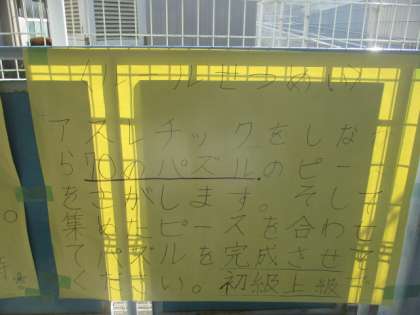 ルールせつめい
アスレチックをしなが
ら70のパズルのピース
をさがします。そして
集めたピースを合わせ
てパズルを完成させて
ください。初級上級